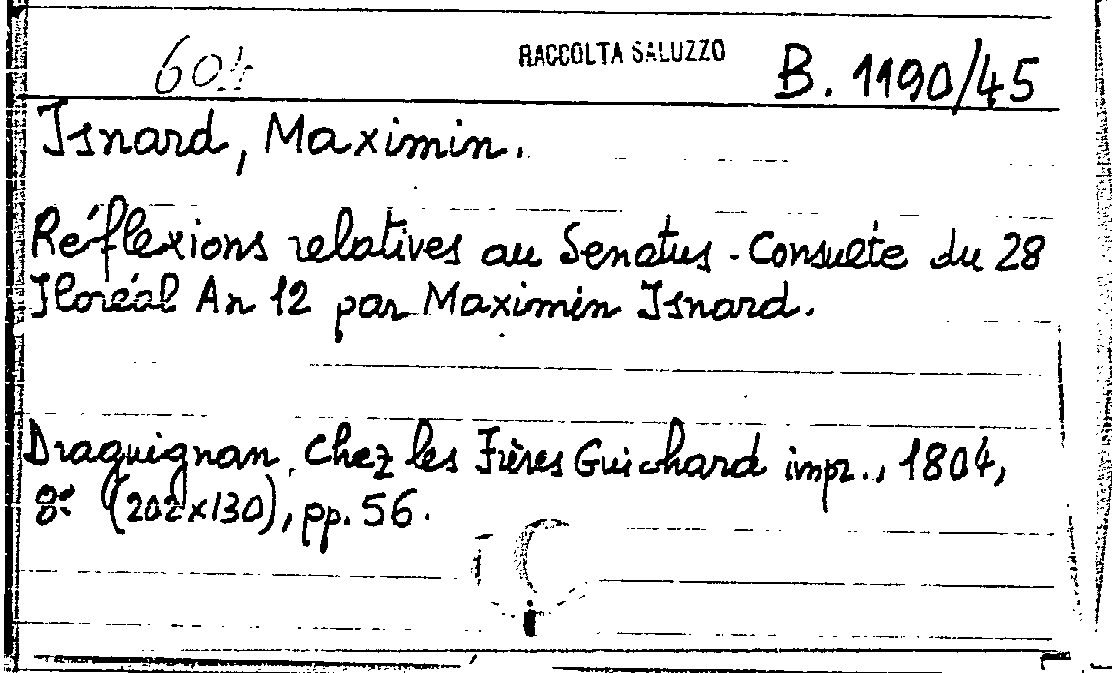 604 RACCOLTA SALUZZO B. 1190/45
Isnard, Maximin.
Réflexions relatives au Senatus-Consulte du 28
Floréal An 12 par Maximin Isnard.
Draguignan, Chez les Frères Guichard impr., 1804,
8º (202x130), pp. 56.